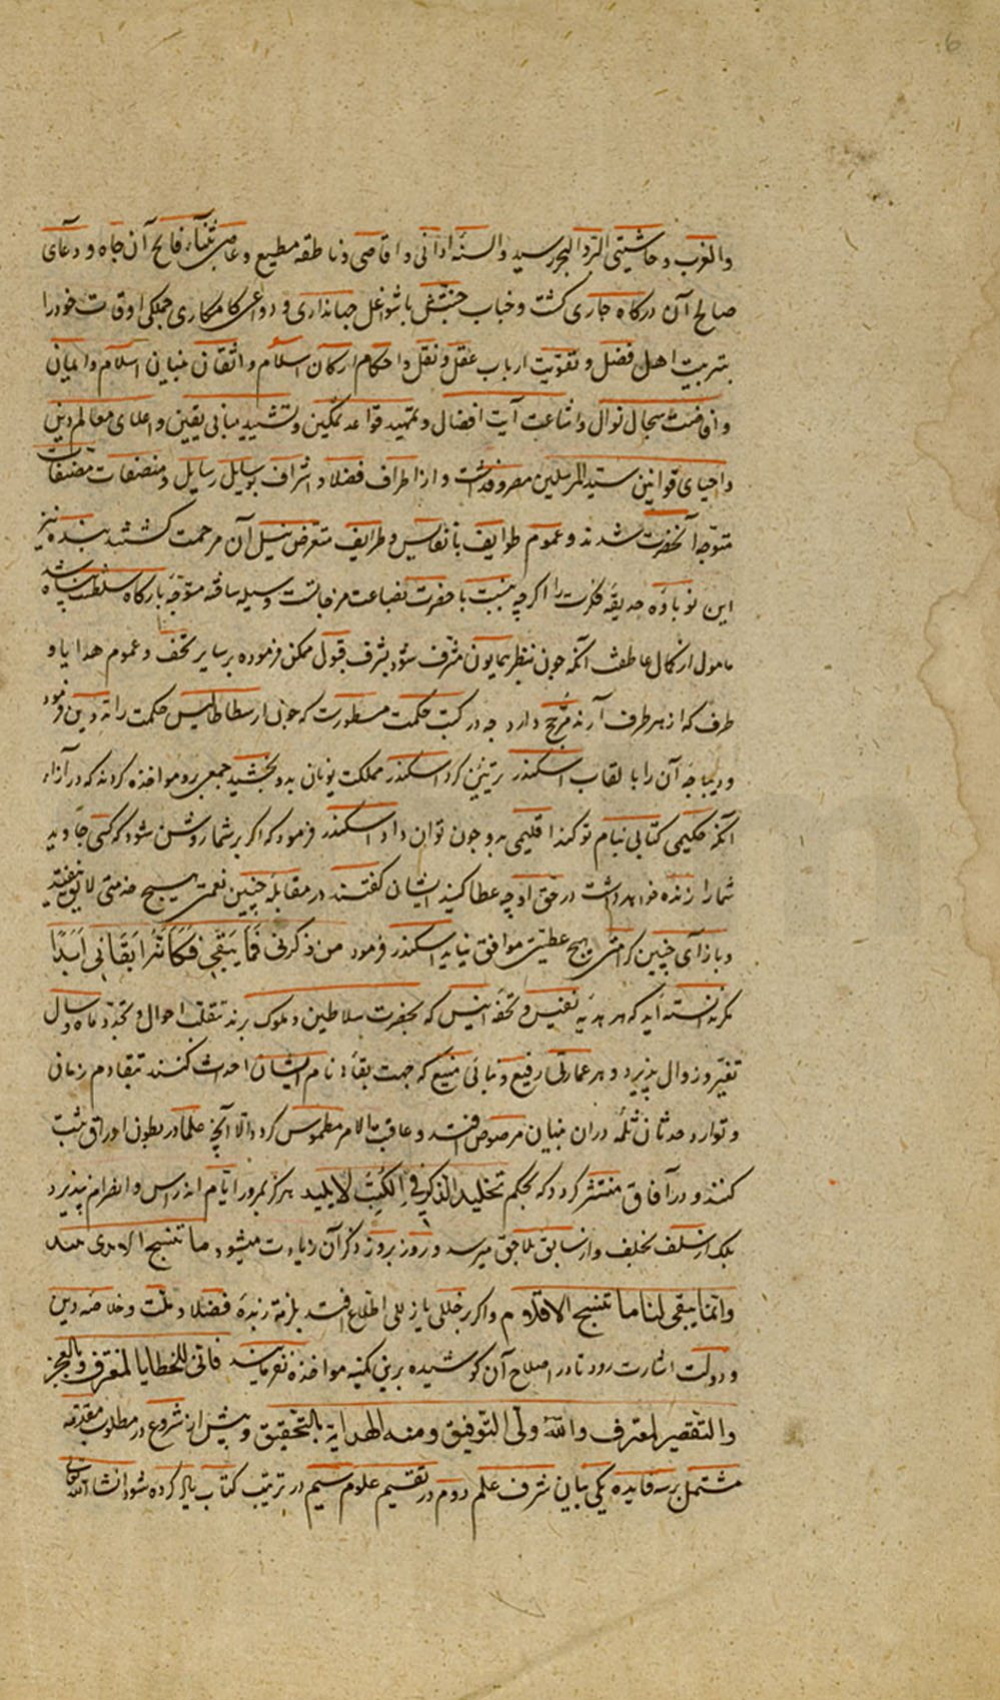 والغرب و حاشیتی البر و البحر رسید و السنهٔ ادانی و اقاصی و ناطقهٔ مطیع و عاصی بثناء فایح آن جاه و دعای
صالح آن درگاه جاری گشت و جناب با شواغل جهانداری و دواعی کامکاری جملگی اوقات خود را
بتربیت اهل فضل و تقویت ارباب عقل و نقل و احکام ارکان اسلام و اتقان بنیان اسلام و ایمان
و افاضت سجال نوال و اشاعت آیت افضال و تمهید قواعد تمکین و تشیید مبانی یقین و اعلای معالم دین
و احیای قوانین سید المرسلین مصروف داشت و از اطراف فضلا و اشراف بوسایل رسایل و منصفات مصنفات
متوجه آنحضرت شدند و عموم طوایف با نفایس و طرایف متعرض نیل آن مرحمت گشتند بنده نیز
این نوباوه حدیقه فکرت را اگرچه بنسبت با حضرت بضاعت مزجاتست وسیله ساخته متوجه بارگاه سلطنت پناه شد
مامول از کمال عاطفت آنکه چون بنظر همایون مشرف شود بشرف قبول ممکن فرموده بر سایر تحف و عموم هدایا و
طرف که از هر طرف آرند مرجح دارد چه در کتب حکمت مسطورست که چون ارسطاطالیس حکمت را تدوین فرمود
و دیباجه آن را بالقاب اسکندر تزیین کرد اسکندر مملکت یونان بدو بخشید جمعی برو مواخذه کردند که در آزاء
آنکه حکیمی کتابی بنام تو کند اقلیمی بدو چون توان داد اسکندر فرمود که اگر بر شما روشن شود که کسی جاوید
شما را زنده خواهد داشت در حق او چه عطا کنید ایشان گفتند در مقابله چنین نعمتی هیچ خدمتی لایق نیفتد
و بازآی چنین کرامتی هیچ عطیتی موافق نیاید اسکندر فرمود من ذکرنی فما یبقی فکانما ابقانی ابدا
مگر ندانسته اید که هر هدیه نفیس و تحفه انیس که بحضرت سلاطین و ملوک برند بتقلب احوال و تجدد ماه و سال
تغیر و زوال پذیرد و هر عمارتی رفیع و بنائی منیع که جهت بقاء نام ایشان احداث کنند بتقادم زمان
و توارد حدثان ثلمه در آن بنیان مرصوص افتد و عاقبة الامر مطموس گردد الا آنچه علما در بطون اوراق ثبت
کنند و در آفاق منتشر گردد که بحکم تخلید الذکر فی الکتب لا یبید هرگز بمرور ایام اندراس و انصرام نپذیرد
بلک از سلف بخلف و از سابق بلاحق میرسد و روز بروز ذکر آن زیادت میشود ما تنسج الایدی
وانما یبقی لنا ما تنسج الاقلام و اگر بر خللی یا زللی اطلاع افتد بلزمهٔ زبدهٔ فضلاء ملت و خلاصه دین
و دولت اشارت رود تا در اصلاح آن کوشیده برین کمینه مواخذه نفرمایند فانی للخطایا لمقترف و بالعجز
والتقصیر لمعترف والله ولی التوفیق و منه الهدایة بالتحقیق و پیش از شروع در مطلوب مقدمه
مشتمل بر سه فایده یکی در بیان شرف علم دوم در تقسیم علوم سیم در ترتیب کتاب یاد کرده شود انشاء الله تعالی